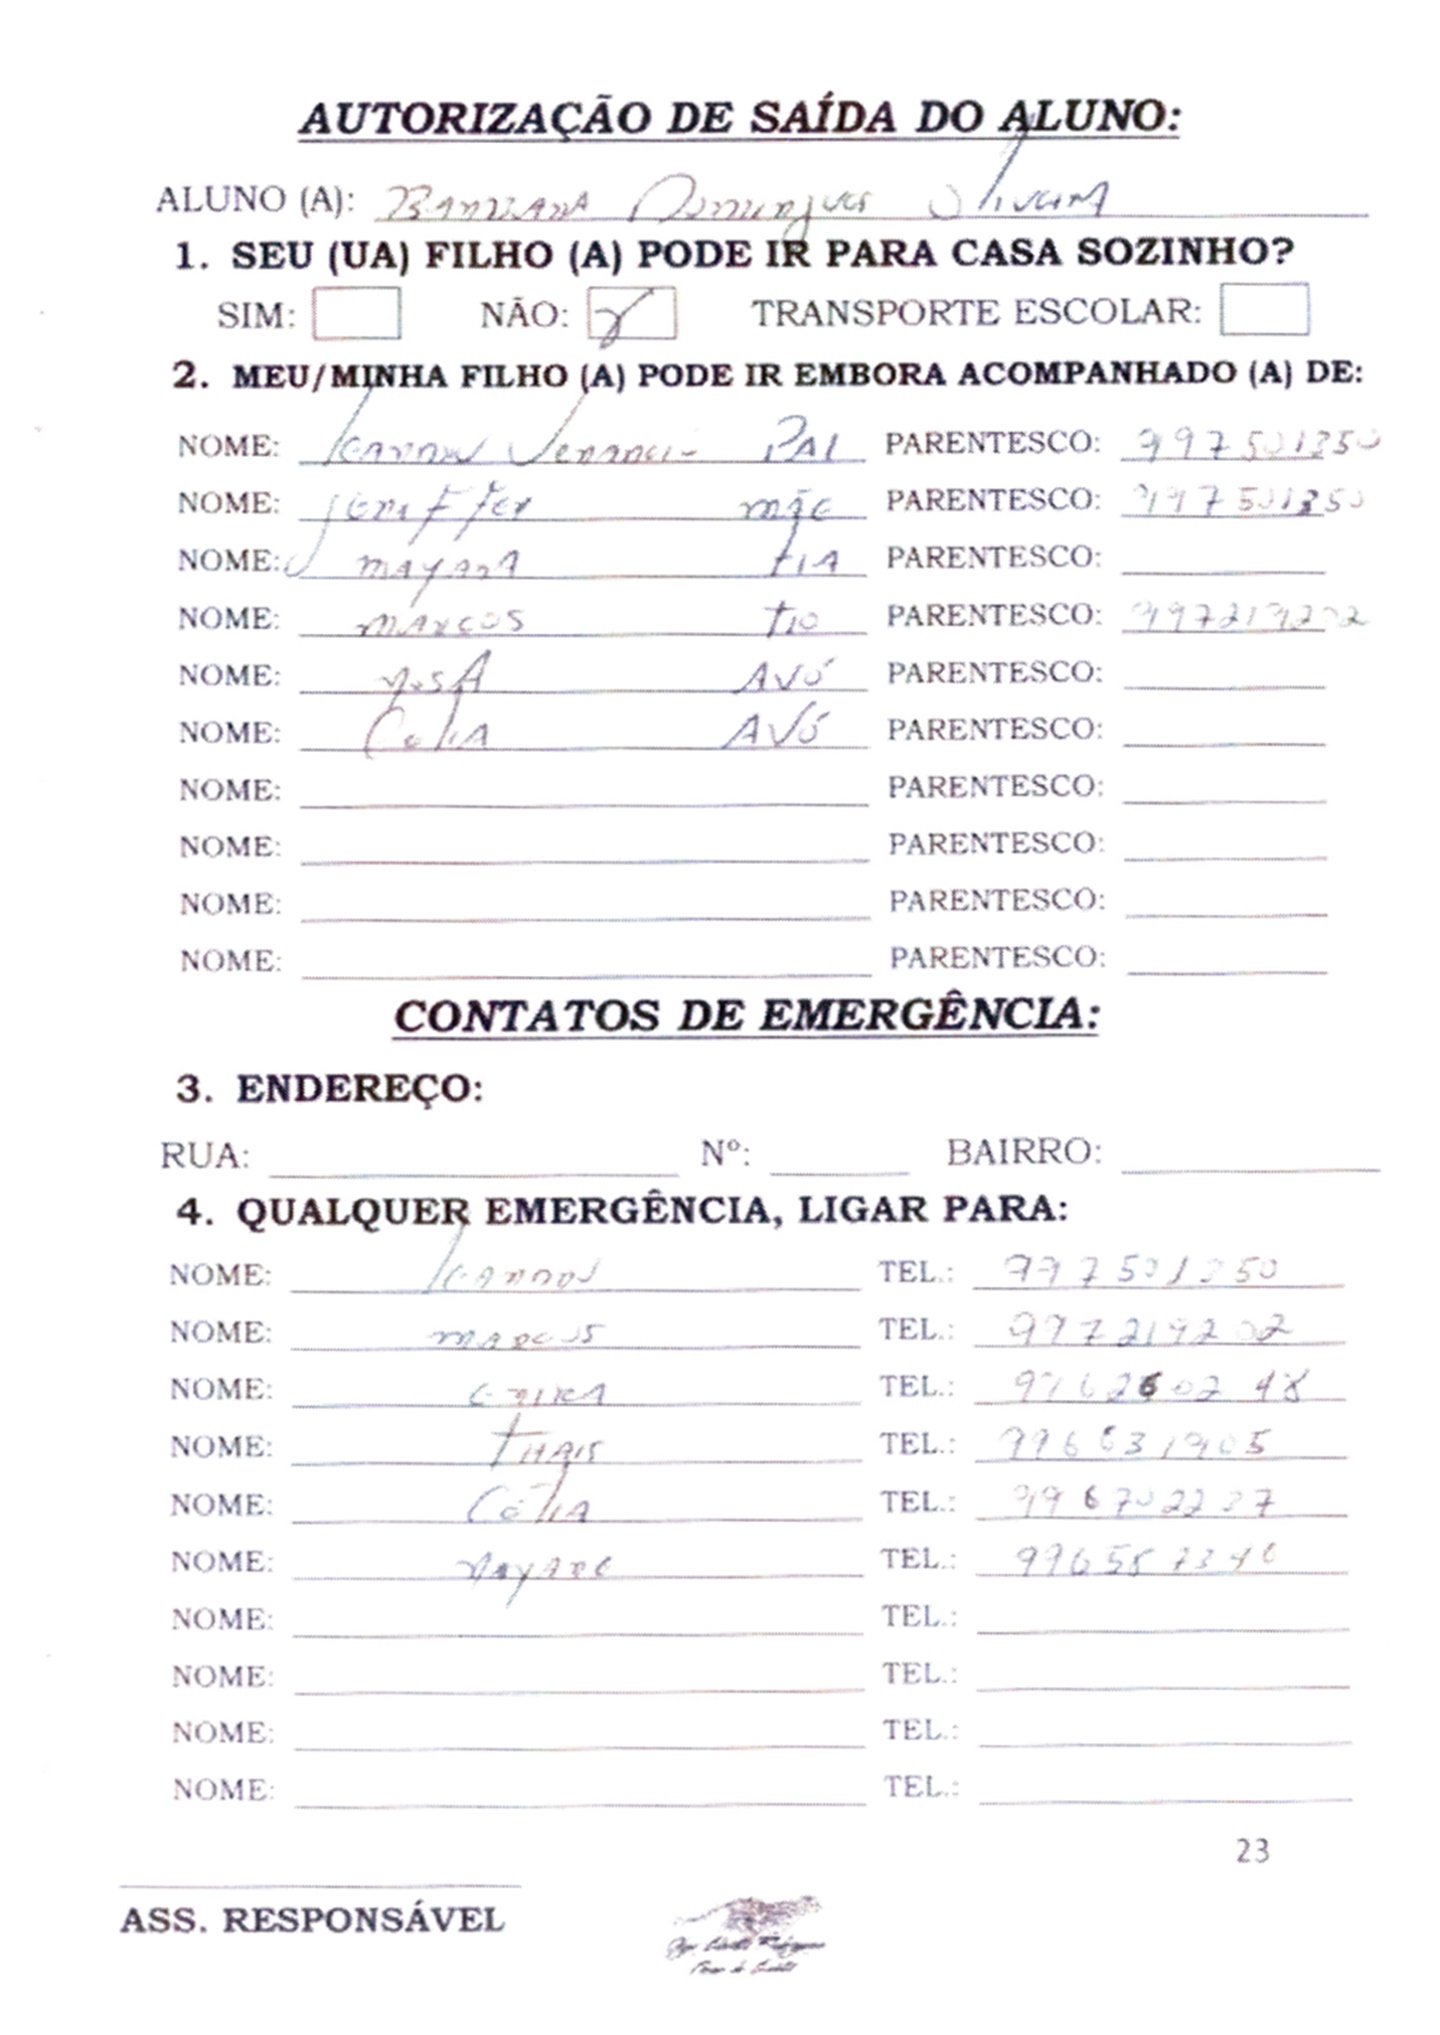 AUTORIZAÇÃO DE SAÍDA DO ALUNO:
ALUNO (A): BARBARA Domingues Oliveira
1. SEU (UA) FILHO (A) PODE IR PARA CASA SOZINHO?
SIM: NÃO: X TRANSPORTE ESCOLAR:
2. MEU/MINHA FILHO (A) PODE IR EMBORA ACOMPANHADO (A) DE:
NOME: PAI PARENTESCO: 997501350
NOME: Jeniffer mãe PARENTESCO: 997501350
NOME: MAYARA tIA PARENTESCO:
NOME: MARCOS tIO PARENTESCO: 997219202
NOME: ROSA AVÓ PARENTESCO:
NOME: CéliA AVÓ PARENTESCO:
NOME: PARENTESCO:
NOME: PARENTESCO:
NOME: PARENTESCO:
NOME: PARENTESCO:
CONTATOS DE EMERGÊNCIA:
3. ENDEREÇO:
RUA: Nº: BAIRRO:
4. QUALQUER EMERGÊNCIA, LIGAR PARA:
NOME: TEL.: 997501350
NOME: MARCOS TEL.: 997219202
NOME: ERIKA TEL.:
NOME: THAIS TEL.: 996631905
NOME: CéliA TEL.: 996702237
NOME: TEL.:
NOME: TEL.:
NOME: TEL.:
NOME: TEL.:
NOME: TEL.:
23
ASS. RESPONSÁVEL